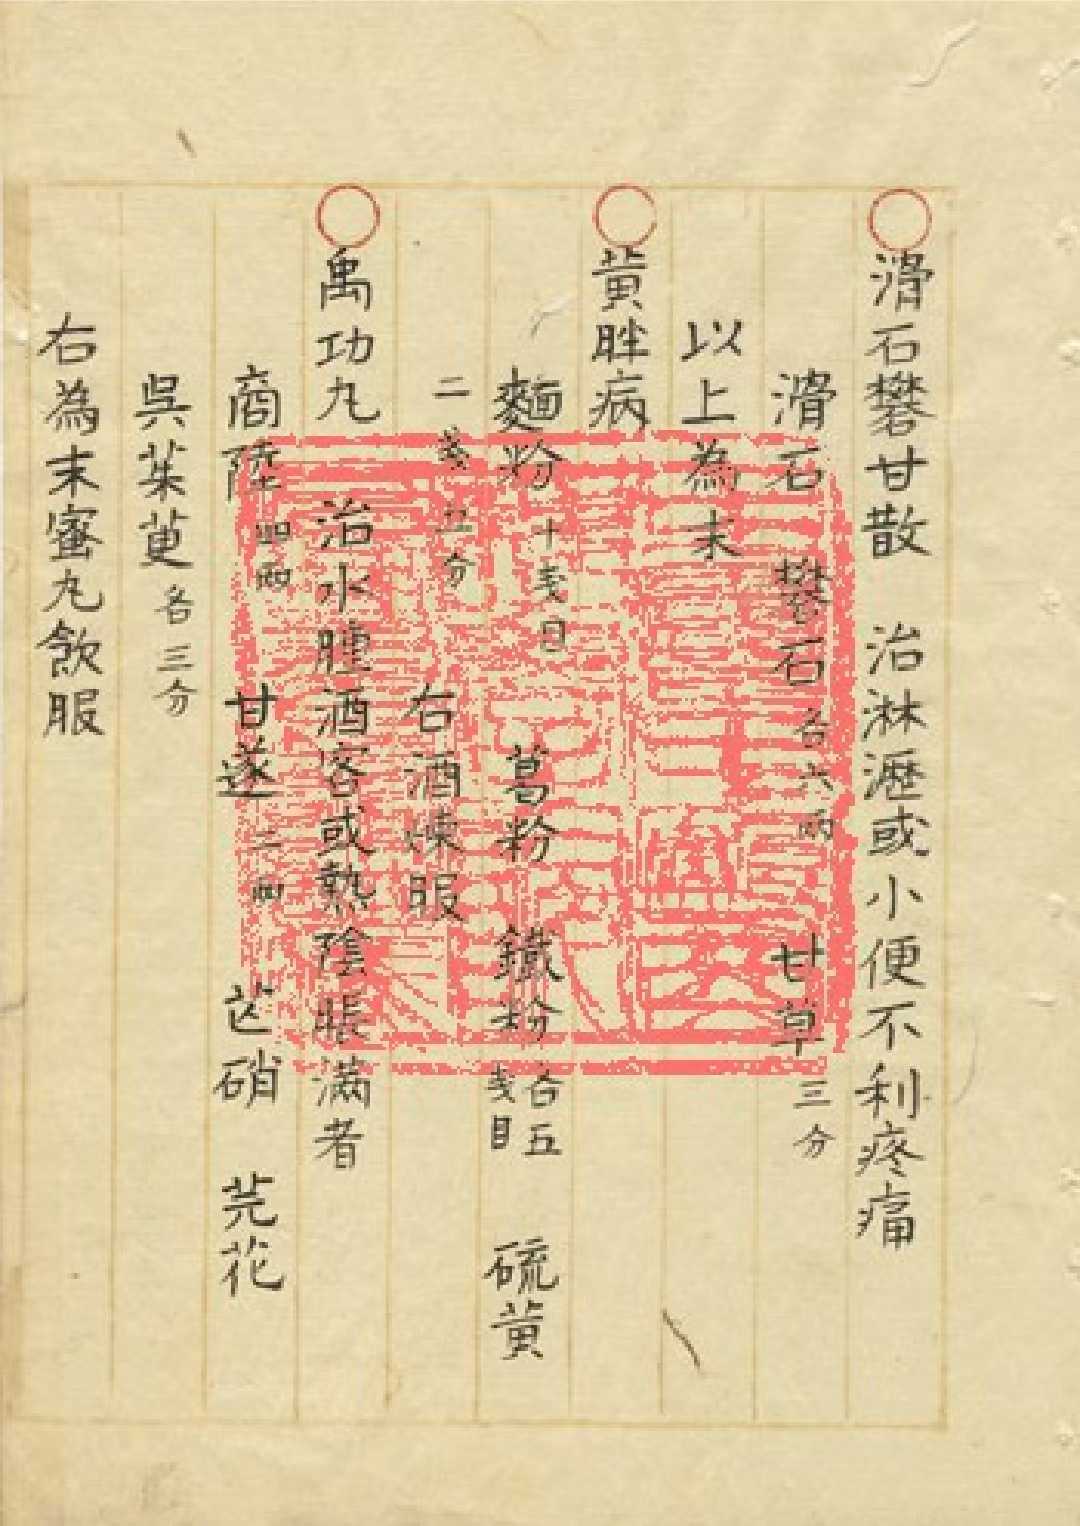 滑石礬甘散 治淋瀝或小便不利疼痛
滑石 礬石各六兩 甘草三分
以上為末
黄胖病
麵粉十戔目 葛粉 鐵粉各五戔目 硫黄
二戔五分 右酒煉服
禹功丸 治水腫酒客或熱陰脹滿者
商陸四兩 甘遂二兩 芒硝 芫花
呉茱萸各三分
右為末蜜丸飲服